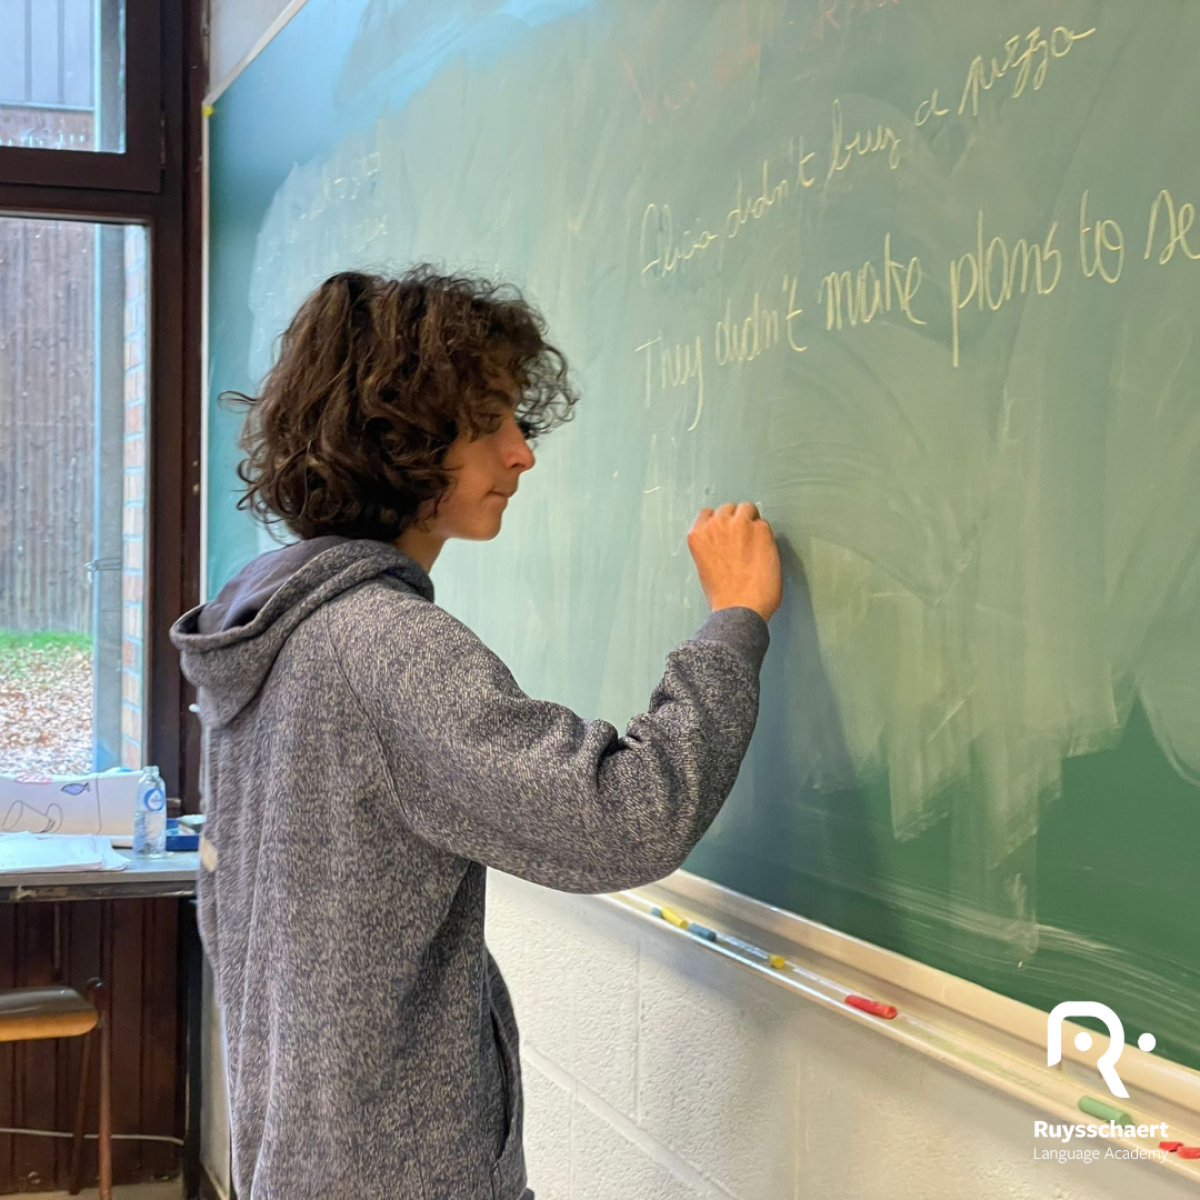 Alicia didn't buy a pizza
They didn't make plans to se
Ruysschaert
Language Academy